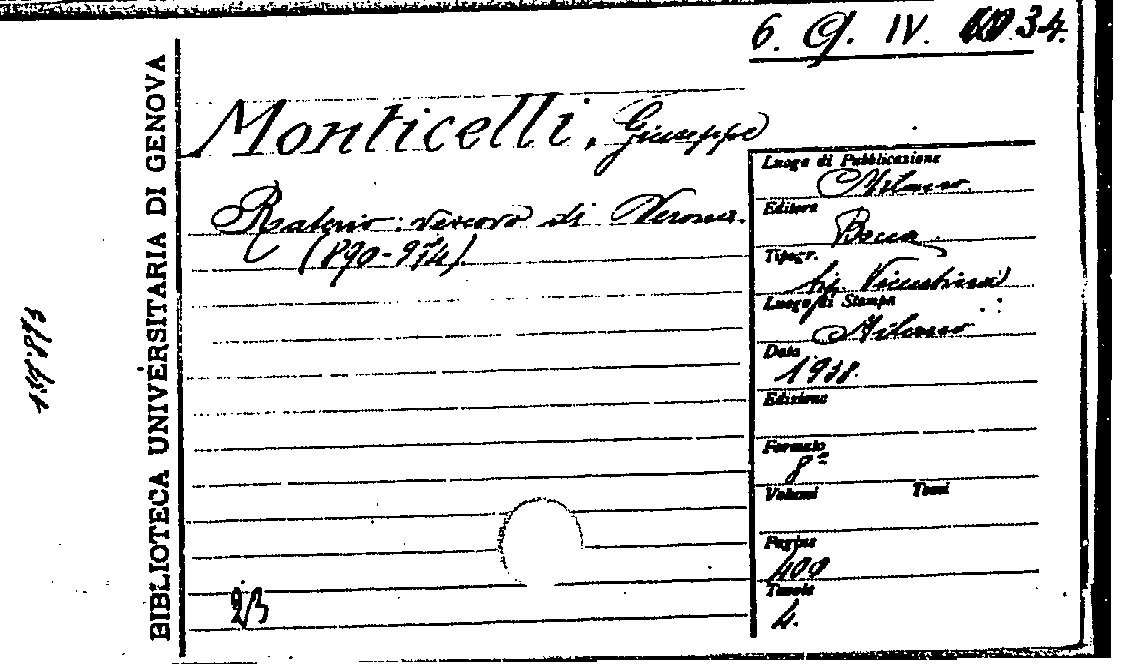 6. Q. IV. 34.
BIBLIOTECA UNIVERSITARIA DI GENOVA
Monticelli, Giuseppe
Raterio: vescovo di Verona.
(890-974).
Luogo di Pubblicazione
Milano.
Editore
Bocca.
Tipogr.
tip. Vicentina
Luogo di Stampa
Milano
Data
1938.
Edizione
Formato
8°
Volumi Tomi
Pagine
400
Tavole
4.
23